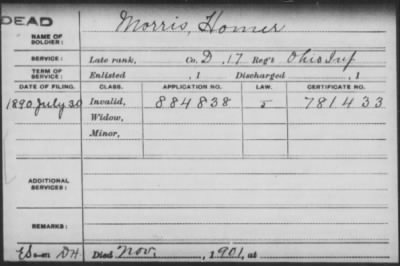 DEAD
NAME OF SOLDIER: Morris, Homer
SERVICE: Late rank, Co. D. 17 Reg't Ohio Inf
TERM OF SERVICE: Enlisted , 1 Discharged , 1
DATE OF FILING. CLASS. APPLICATION NO. LAW. CERTIFICATE NO.
1890 July 30 Invalid, 884838 781433
Widow,
Minor,
ADDITIONAL SERVICES:
REMARKS:
Died Nov. , 1901, at